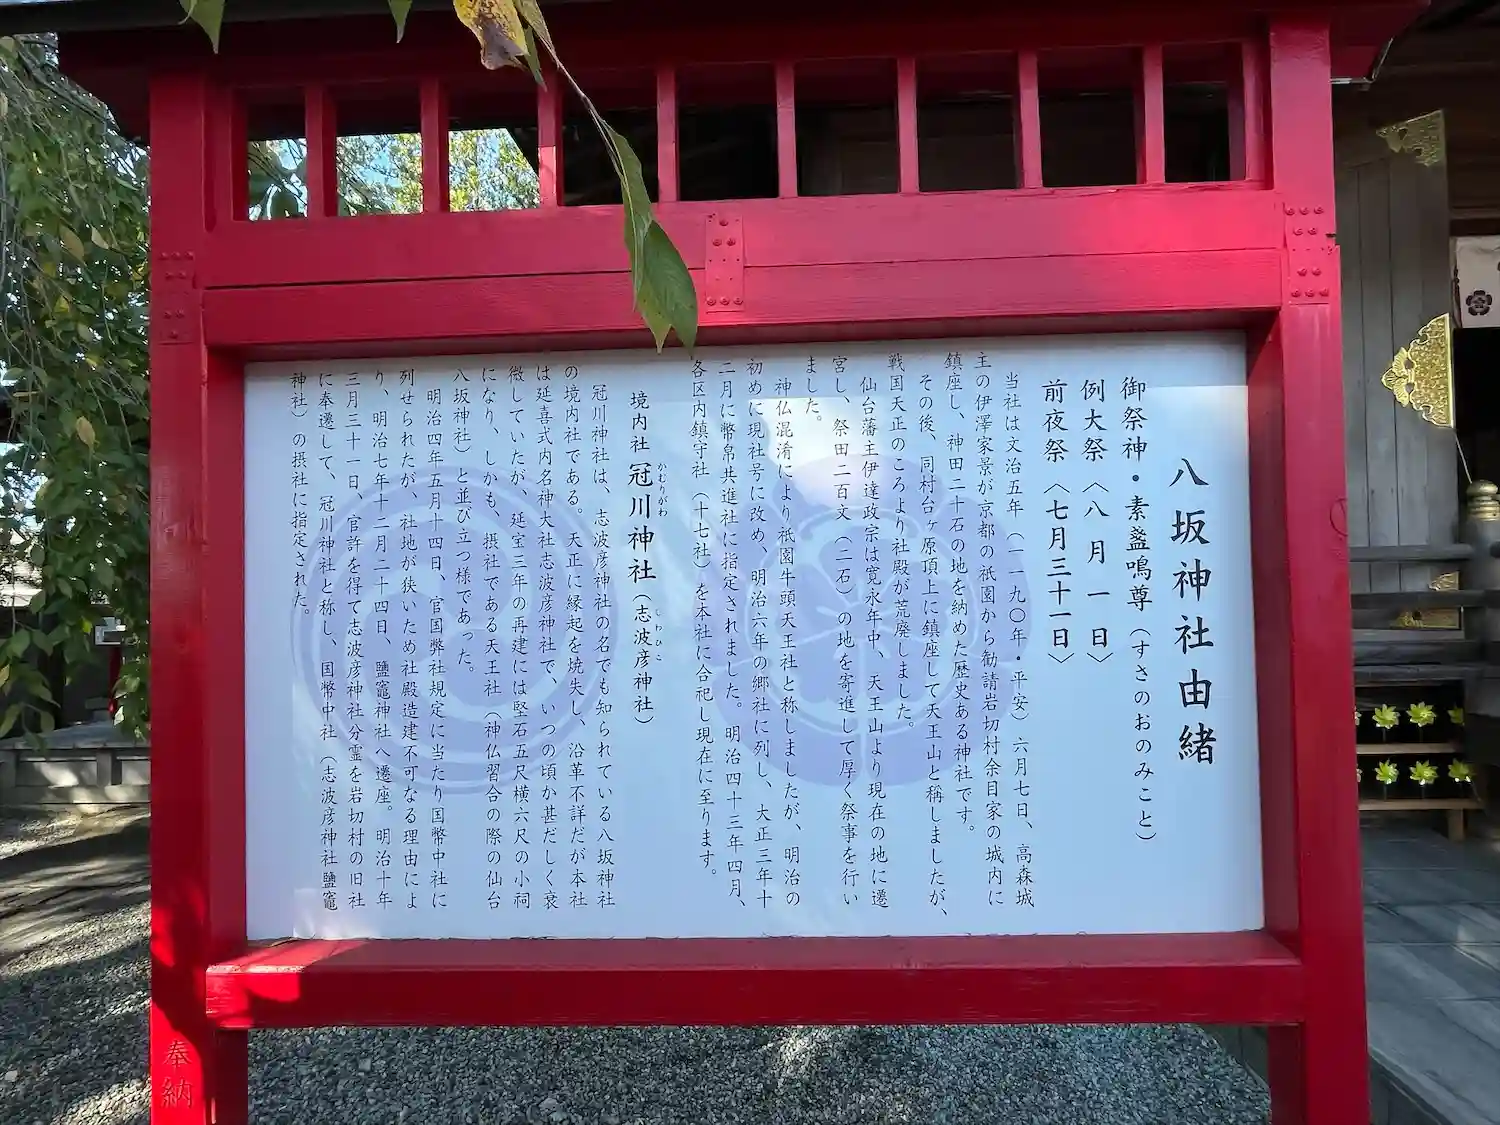 八坂神社由緒
御祭神・素盞鳴尊（すさのおのみこと）
例大祭〈八月一日〉
前夜祭〈七月三十一日〉
当社は文治五年（一一九〇年・平安）六月七日、高森城
主の伊澤家景が京都の祇園から勧請岩切村余目家の城内に
鎮座し、神田二十石の地を納めた歴史ある神社です。
その後、同村台ヶ原頂上に鎮座して天王山と稱しましたが、
戦国天正のころより社殿が荒廃しました。
仙台藩主伊達政宗は寛永年中、天王山より現在の地に遷
宮し、祭田二百文（二石）の地を寄進して厚く祭事を行い
ました。
神仏混淆により祇園牛頭天王社と称しましたが、明治の
初めに現社号に改め、明治六年の郷社に列し、大正三年十
二月に幣帛共進社に指定されました。明治四十三年四月、
各区内鎮守社（十七社）を本社に合祀し現在に至ります。
境内社 冠川神社（志波彦神社）
かむりがわ
しわひこ
冠川神社は、志波彦神社の名でも知られている八坂神社
の境内社である。天正に縁起を焼失し、沿革不詳だが本社
は延喜式内名神大社志波彦神社で、いつの頃か甚だしく衰
微していたが、延宝三年の再建には堅石五尺横六尺の小祠
になり、しかも、摂社である天王社（神仏習合の際の仙台
八坂神社）と並び立つ様であった。
明治四年五月十四日、官国弊社規定に当たり国幣中社に
列せられたが、社地が狭いため社殿造建不可なる理由によ
り、明治七年十二月二十四日、鹽竈神社へ遷座。明治十年
三月三十一日、官許を得て志波彦神社分霊を岩切村の旧社
に奉遷して、冠川神社と称し、国幣中社（志波彦神社鹽竈
神社）の摂社に指定された。
奉納